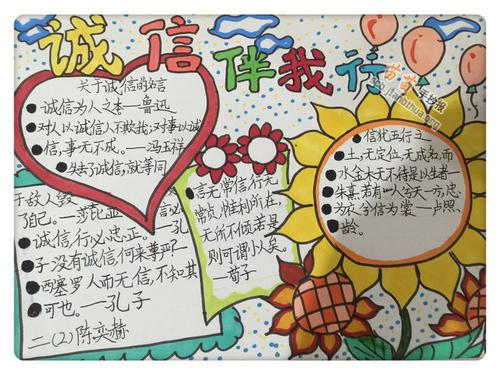 诚信伴我行
关于诚信的名言
诚信为人之本—鲁迅
对人以诚信人不欺我;对事以诚
信,事无不成。—冯玉祥
失去了诚信,就等同
于敌人毁
了自己。—莎士比亚
诚信,行必忠正。—孔
子没有诚信,何来尊严?
西塞罗人而无信,不知其
可也。—孔子
二(2)陈奕赫
言无常信,行无
常贞,惟利所在,
无所不倾若是
则可谓小人矣。
荀子
信犹五行之
土,无定位,无成名,而
水金木无不待是以生者—
朱熹.若有一人兮天一方,忠
为衣兮信为裳—卢照
龄。